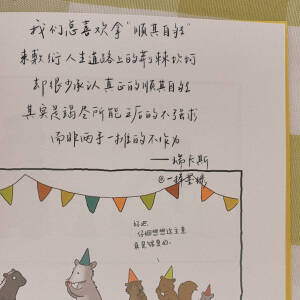 我们总喜欢拿“顺其自然”
来敷衍人生道路上的荆棘坎坷
却很少承认真正的顺其自然
其实是竭尽所能之后的不强求
而非两手一摊的不作为
——瑞卡斯
好吧，
仔细想想这主意
真是够蠢的。